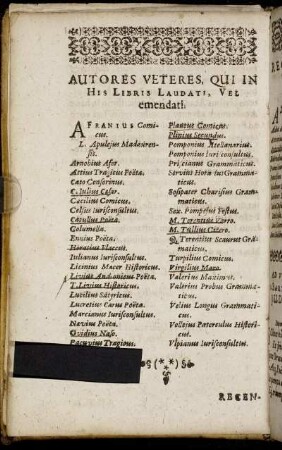 AUTORES VETERES, QUI IN
HIS LIBRIS LAUDATI, VEL
emendati.
AFRANIUS Comi-
cus.
L. Apulejus Madaurensis.
Arnobius Afer.
Attius Tragicus Poëta.
Cato Censorinus.
C. Iulius Cæsar.
Cæcilius Comicus.
Celsus Iurisconsultus.
Catullus Poëta.
Columella.
Ennius Poëta.
Horatius Flaccus.
Iulianus Iurisconsultus.
Licinius Macer Historicus.
Livius Andronicus Poëta.
T. Livius Historicus.
Lucilius Satyricus.
Lucretius Carus Poëta.
Marcianus Iurisconsultus.
Nævius Poëta.
Ovidius Naso.
Pacuvius Tragicus.
Plautus Comicus.
Plinius Secundus.
Pomponius Atellanarius.
Pomponius Iurisconsultus.
Priscianus Grammaticus.
Servius Honoratus Gramma-
ticus.
Sosipater Charisius Gram-
maticus.
Sex. Pompeius Festus.
M. Terentius Varro.
M. Tullius Cicero.
Q. Terentius Scaurus Gra-
maticus.
Turpilius Comicus.
Virgilius Maro.
Valerius Maximus.
Valerius Probus Gramma-
ticus.
Velius Longus Grammati-
cus.
Vellejus Paterculus Histori-
cus.
Vlpianus Iurisconsultus.
RECEN-